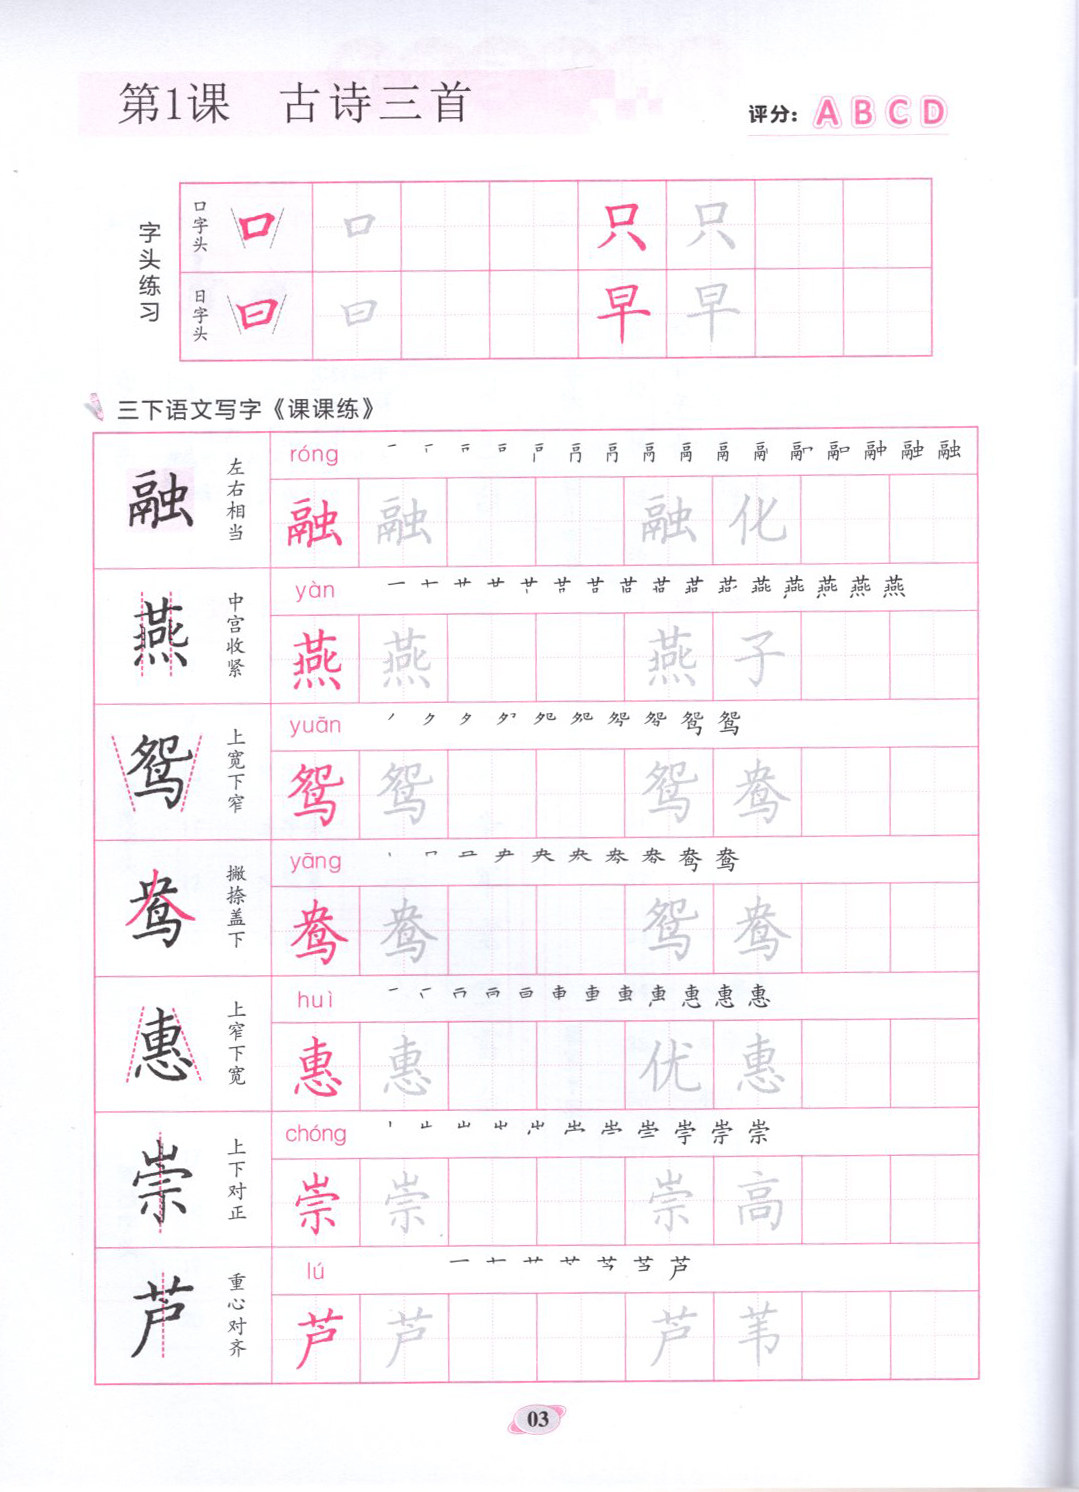 第1课 古诗三首
评分: A B C D
字头练习
口字头 口 口 只 只
日字头 曰 曰 早 早
三下语文写字《课课练》
融 左右相当
róng
融 融 融 化
燕 中宫收紧
yàn
燕 燕 燕 子
鸳 上宽下窄
yuān
鸳 鸳 鸳 鸯
鸯 撇捺盖下
yāng
鸯 鸯 鸳 鸯
惠 上窄下宽
huì
惠 惠 优 惠
崇 上下对正
chóng
崇 崇 崇 高
芦 重心对齐
lú
芦 芦 芦 苇
03